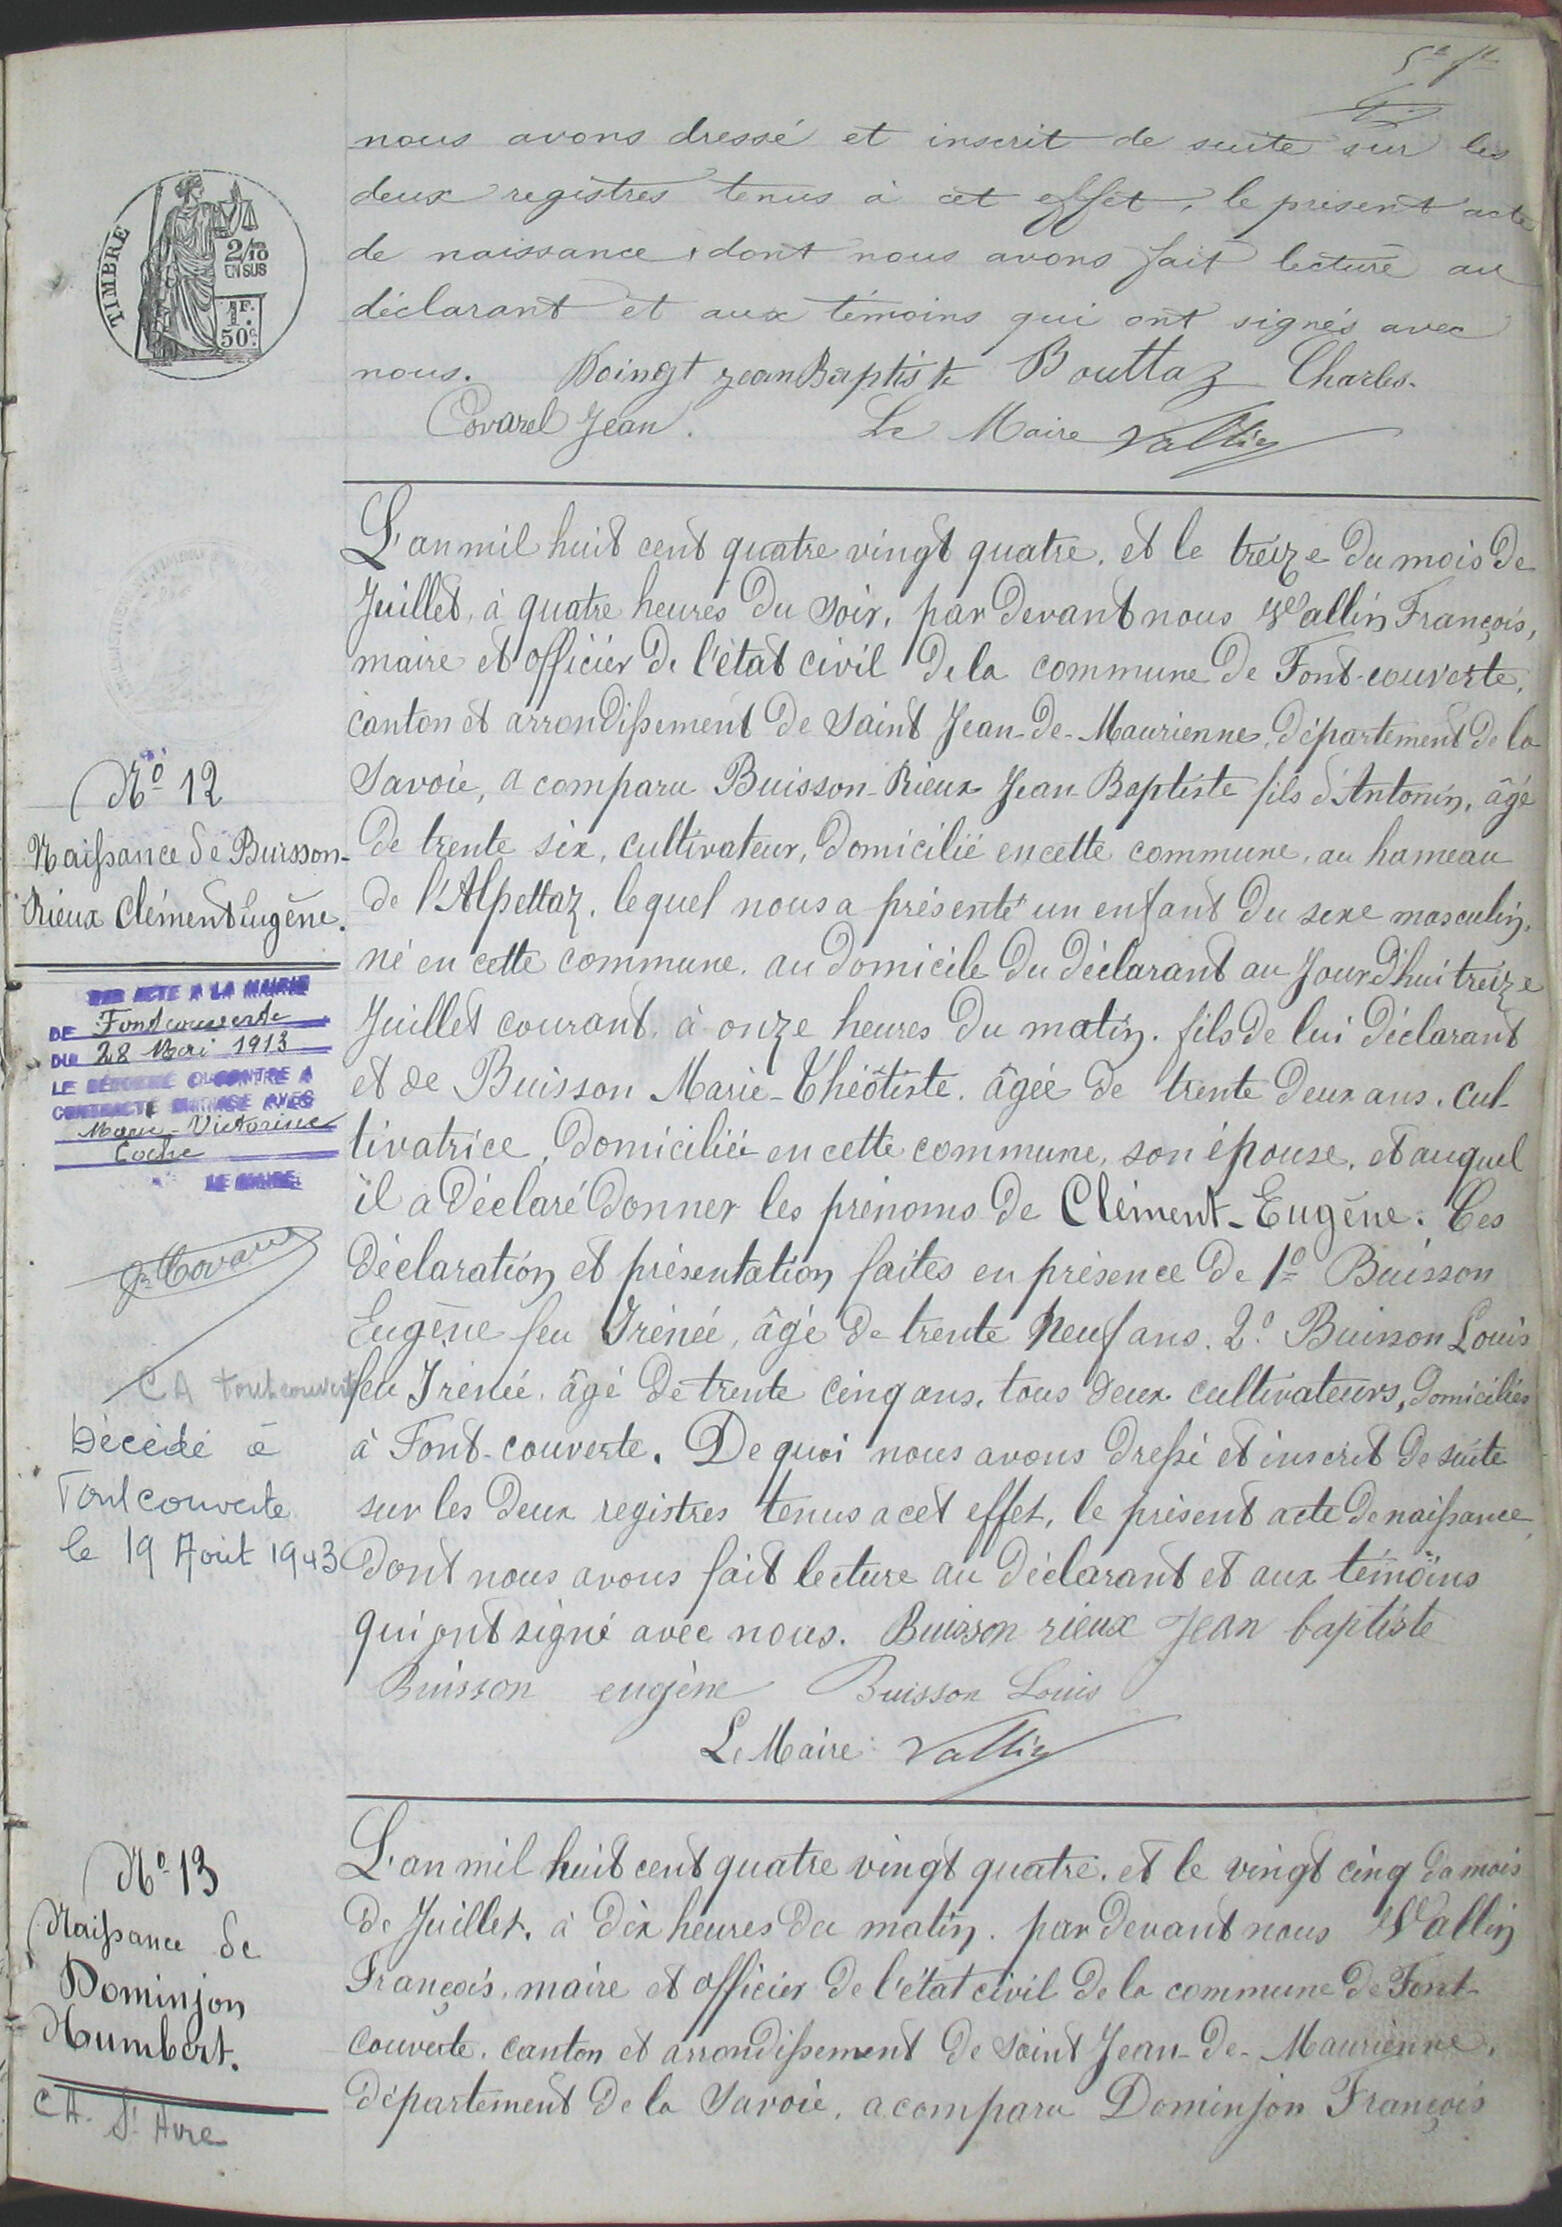 5e ft
nous avons dressé et inscrit de suite sur les
deux registres tenus à cet effet, le présent acte
de naissance, dont nous avons fait lecture au
déclarant et aux témoins qui ont signés avec
nous. Doingt jean Baptiste Bouttaz Charles.
Covarel Jean. Le Maire Vallin
TIMBRE
2/10
EN SUS
1F.
50c.
Nº 12
Naissance de Buisson-
Rieux Clément Eugène.
PAR ACTE A LA MAIRIE
DE Fontcouverte
DU 28 Mai 1913
LE DÉNOMMÉ CI-CONTRE A
CONTRACTÉ MARIAGE AVEC
Marie-Victorine
Coche
LE MAIRE
J. Covarel
CA Fontcouverte
Décédé à
Fontcouverte
le 19 Août 1943
L'an mil huit cent quatre vingt quatre, et le treize du mois de
Juillet, à quatre heures du soir, par devant nous Vallin François,
maire et officier de l'état civil de la commune de Font-couverte,
canton et arrondissement de Saint Jean-de-Maurienne, département de la
Savoie, a comparu Buisson-Rieux Jean Baptiste fils d'Antonin, âgé
de trente six, cultivateur, domicilié en cette commune, au hameau
de l'Alpettaz, lequel nous a présenté un enfant du sexe masculin,
né en cette commune, au domicile du déclarant au Jourd'hui treize
Juillet courant, à onze heures du matin, fils de lui déclarant
et de Buisson Marie-Théotiste, âgée de trente deux ans, cul-
tivatrice, domiciliée en cette commune, son épouse, et auquel
il a déclaré donner les prénoms de Clément-Eugène. Ces
déclaration et présentation faites en présence de 1º Buisson
Eugène feu Irénée, âgé de trente neuf ans. 2º Buisson Louis
feu Irénée, âgé de trente cinq ans, tous deux cultivateurs, domiciliés
à Font-couverte. De quoi nous avons dressé et inscrit de suite
sur les deux registres tenus a cet effet, le présent acte de naissance,
dont nous avons fait lecture au déclarant et aux témoins
qui ont signé avec nous. Buisson rieux Jean baptiste
Buisson eugène Buisson Louis
Le Maire: Vallin
Nº 13
Naissance de
Dominjon
Humbert.
CA. St Avre
L'an mil huit cent quatre vingt quatre, et le vingt cinq du mois
de Juillet, à dix heures du matin, par devant nous Vallin
François, maire et officier de l'état civil de la commune de Font-
couverte, canton et arrondissement de Saint Jean-de-Maurienne,
département de la Savoie, a comparu Dominjon François